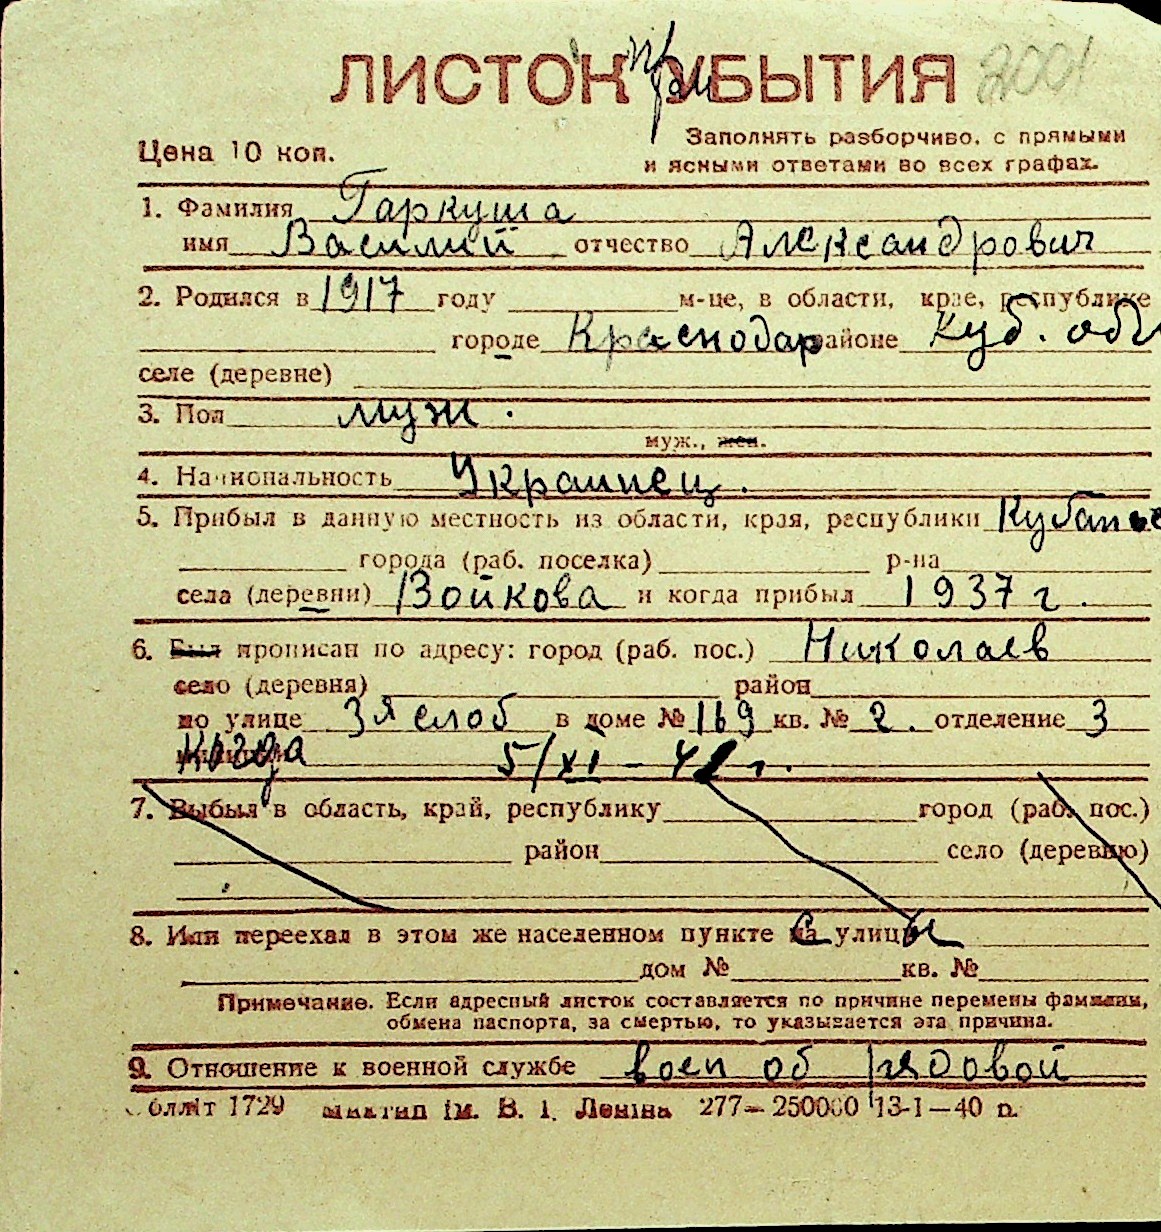 ЛИСТОК при УБЫТИЯ 2001
Цена 10 коп.
Заполнять разборчиво, с прямыми
и ясными ответами во всех графах.
1. Фамилия Гаркуша
имя Василий отчество Александрович
2. Родился в 1917 году м-це, в области, крае, республике
городе Краснодар районе Куб. обл
селе (деревне)
3. Пол муж.
муж., жен.
4. Национальность Украинец.
5. Прибыл в данную местность из области, края, республики Кубанье
города (раб. поселка) р-на
села (деревни) Войкова и когда прибыл 1937 г.
6. Был прописан по адресу: город (раб. пос.) Николаев
село (деревня) район
по улице 3я слоб в доме № 169 кв. № 2. отделение 3
Когда 5/XI - 42 г.
7. Выбыл в область, край, республику город (раб. пос.)
район село (деревню)
8. Или переехал в этом же населенном пункте с улицы
дом № кв. №
Примечание. Если адресный листок составляется по причине перемены фамилии,
обмена паспорта, за смертью, то указывается эта причина.
9. Отношение к военной службе воен об рядовой
Облліт 1729 ім. В. І. Леніна 277—250000 13-1—40 р.